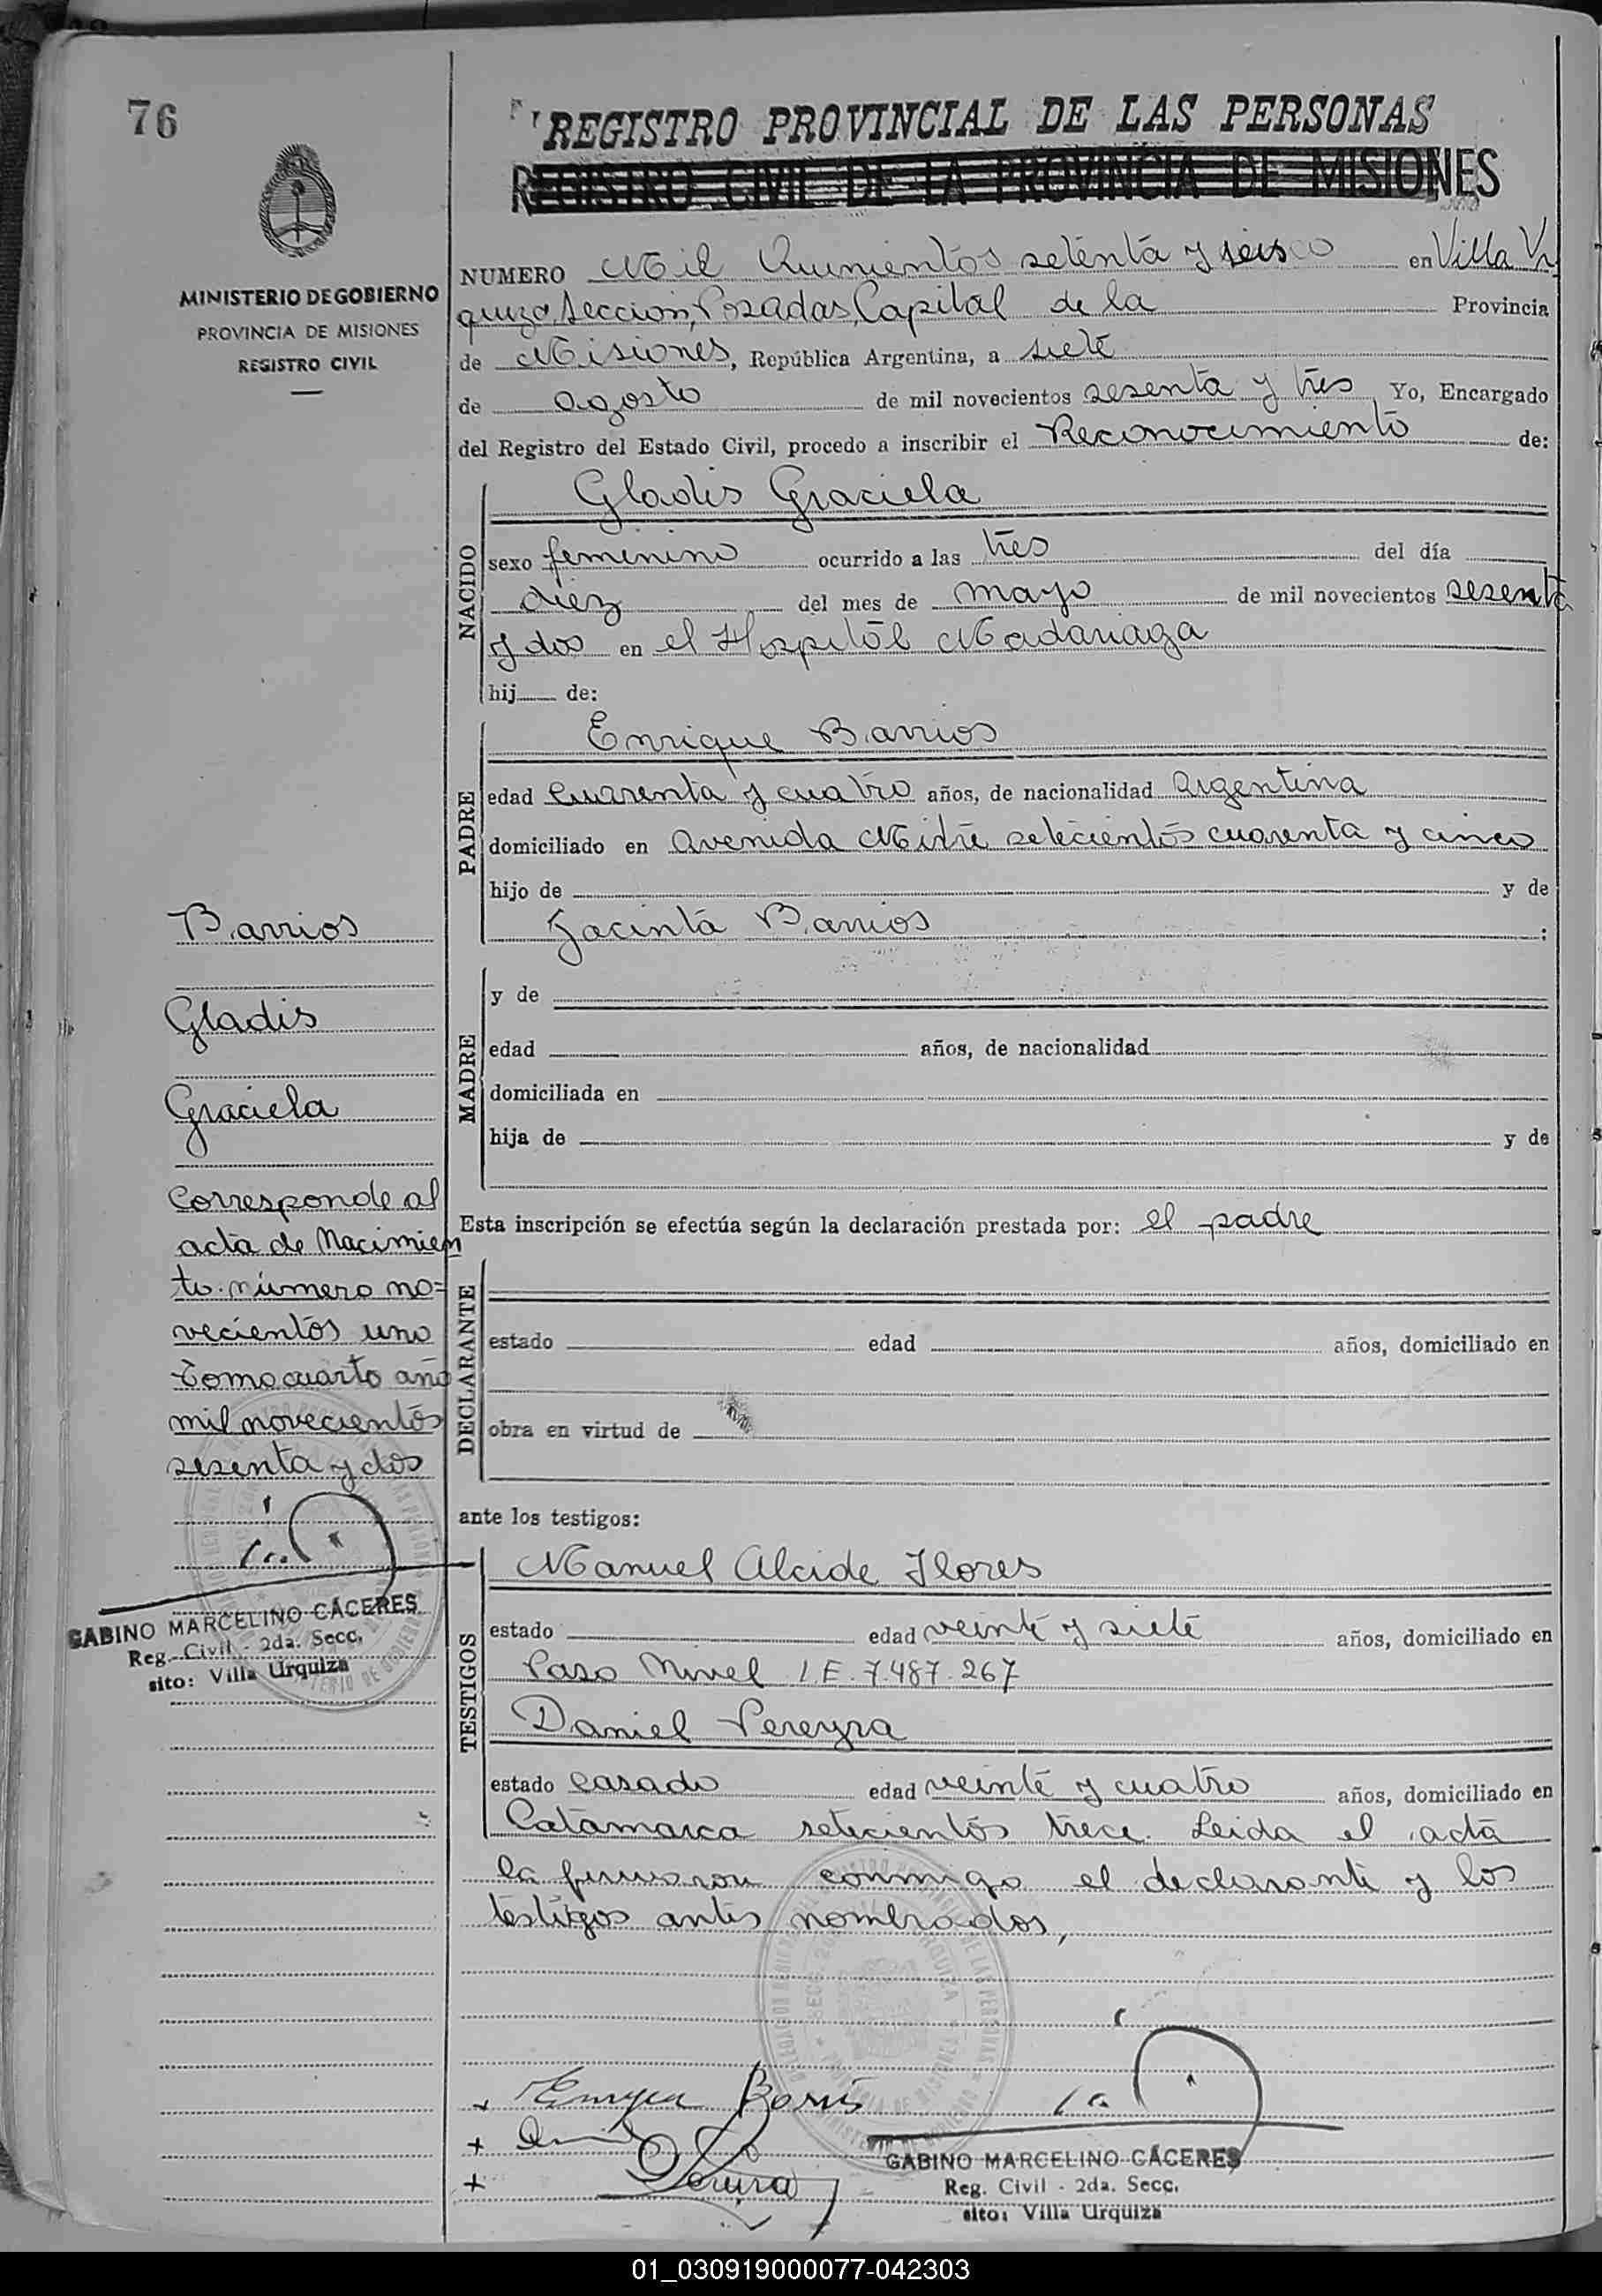 76
REGISTRO PROVINCIAL DE LAS PERSONAS
REGISTRO CIVIL DE LA PROVINCIA DE MISIONES
MINISTERIO DE GOBIERNO
PROVINCIA DE MISIONES
REGISTRO CIVIL
NUMERO Mil Quinientos setenta y seis en Villa Ur
quiza, Seccion, Posadas, Capital de la Provincia
de Misiones, República Argentina, a siete
de agosto de mil novecientos sesenta y tres Yo, Encargado
del Registro del Estado Civil, procedo a inscribir el Reconocimiento de:
NACIDO
Gladis Graciela
sexo femenino ocurrido a las tres del día
diez del mes de mayo de mil novecientos sesenta
y dos en el Hospital Madariaga
hij de:
PADRE
Enrique Barrios
edad cuarenta y cuatro años, de nacionalidad Argentina
domiciliado en Avenida Mitre setecientos cuarenta y cinco
hijo de y de
Jacinta Barrios ;
MADRE
y de
edad años, de nacionalidad
domiciliada en
hija de y de
Esta inscripción se efectúa según la declaración prestada por: el padre
DECLARANTE
estado edad años, domiciliado en
obra en virtud de
ante los testigos:
TESTIGOS
Manuel Alcide Flores
estado edad veinte y siete años, domiciliado en
Paso Nivel I.E. 7.487.267
Daniel Pereyra
estado casado edad veinte y cuatro años, domiciliado en
Catamarca setecientos trece. Leida el acta
la firmaron conmigo el declarante y los
testigos antes nombrados,
Barrios
Gladis
Graciela
Corresponde al
acta de Nacimien
to número no=
vecientos uno
Tomo cuarto año
mil novecientos
sesenta y dos
GABINO MARCELINO CÁCERES
Reg. Civil - 2da. Secc.
sito: Villa Urquiza
GABINO MARCELINO CÁCERES
Reg. Civil - 2da. Secc.
sito: Villa Urquiza
01_030919000077-042303